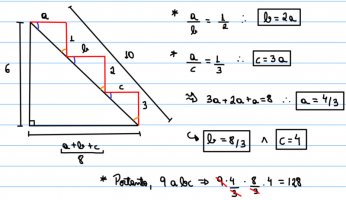 a
1
b
2
c
3
10
6
a+b+c
8
* a/b = 1/2 ∴ b = 2a
* a/c = 1/3 ∴ c = 3a
⇒ 3a + 2a + a = 8 ∴ a = 4/3
↪ b = 8/3 ∧ c = 4
* Portanto, 9abc ⇒ 9 · 4/3 · 8/3 · 4 = 128